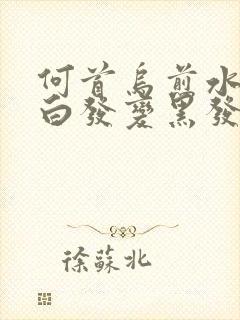 何首烏煎水
白發變黑發
徐蘇北